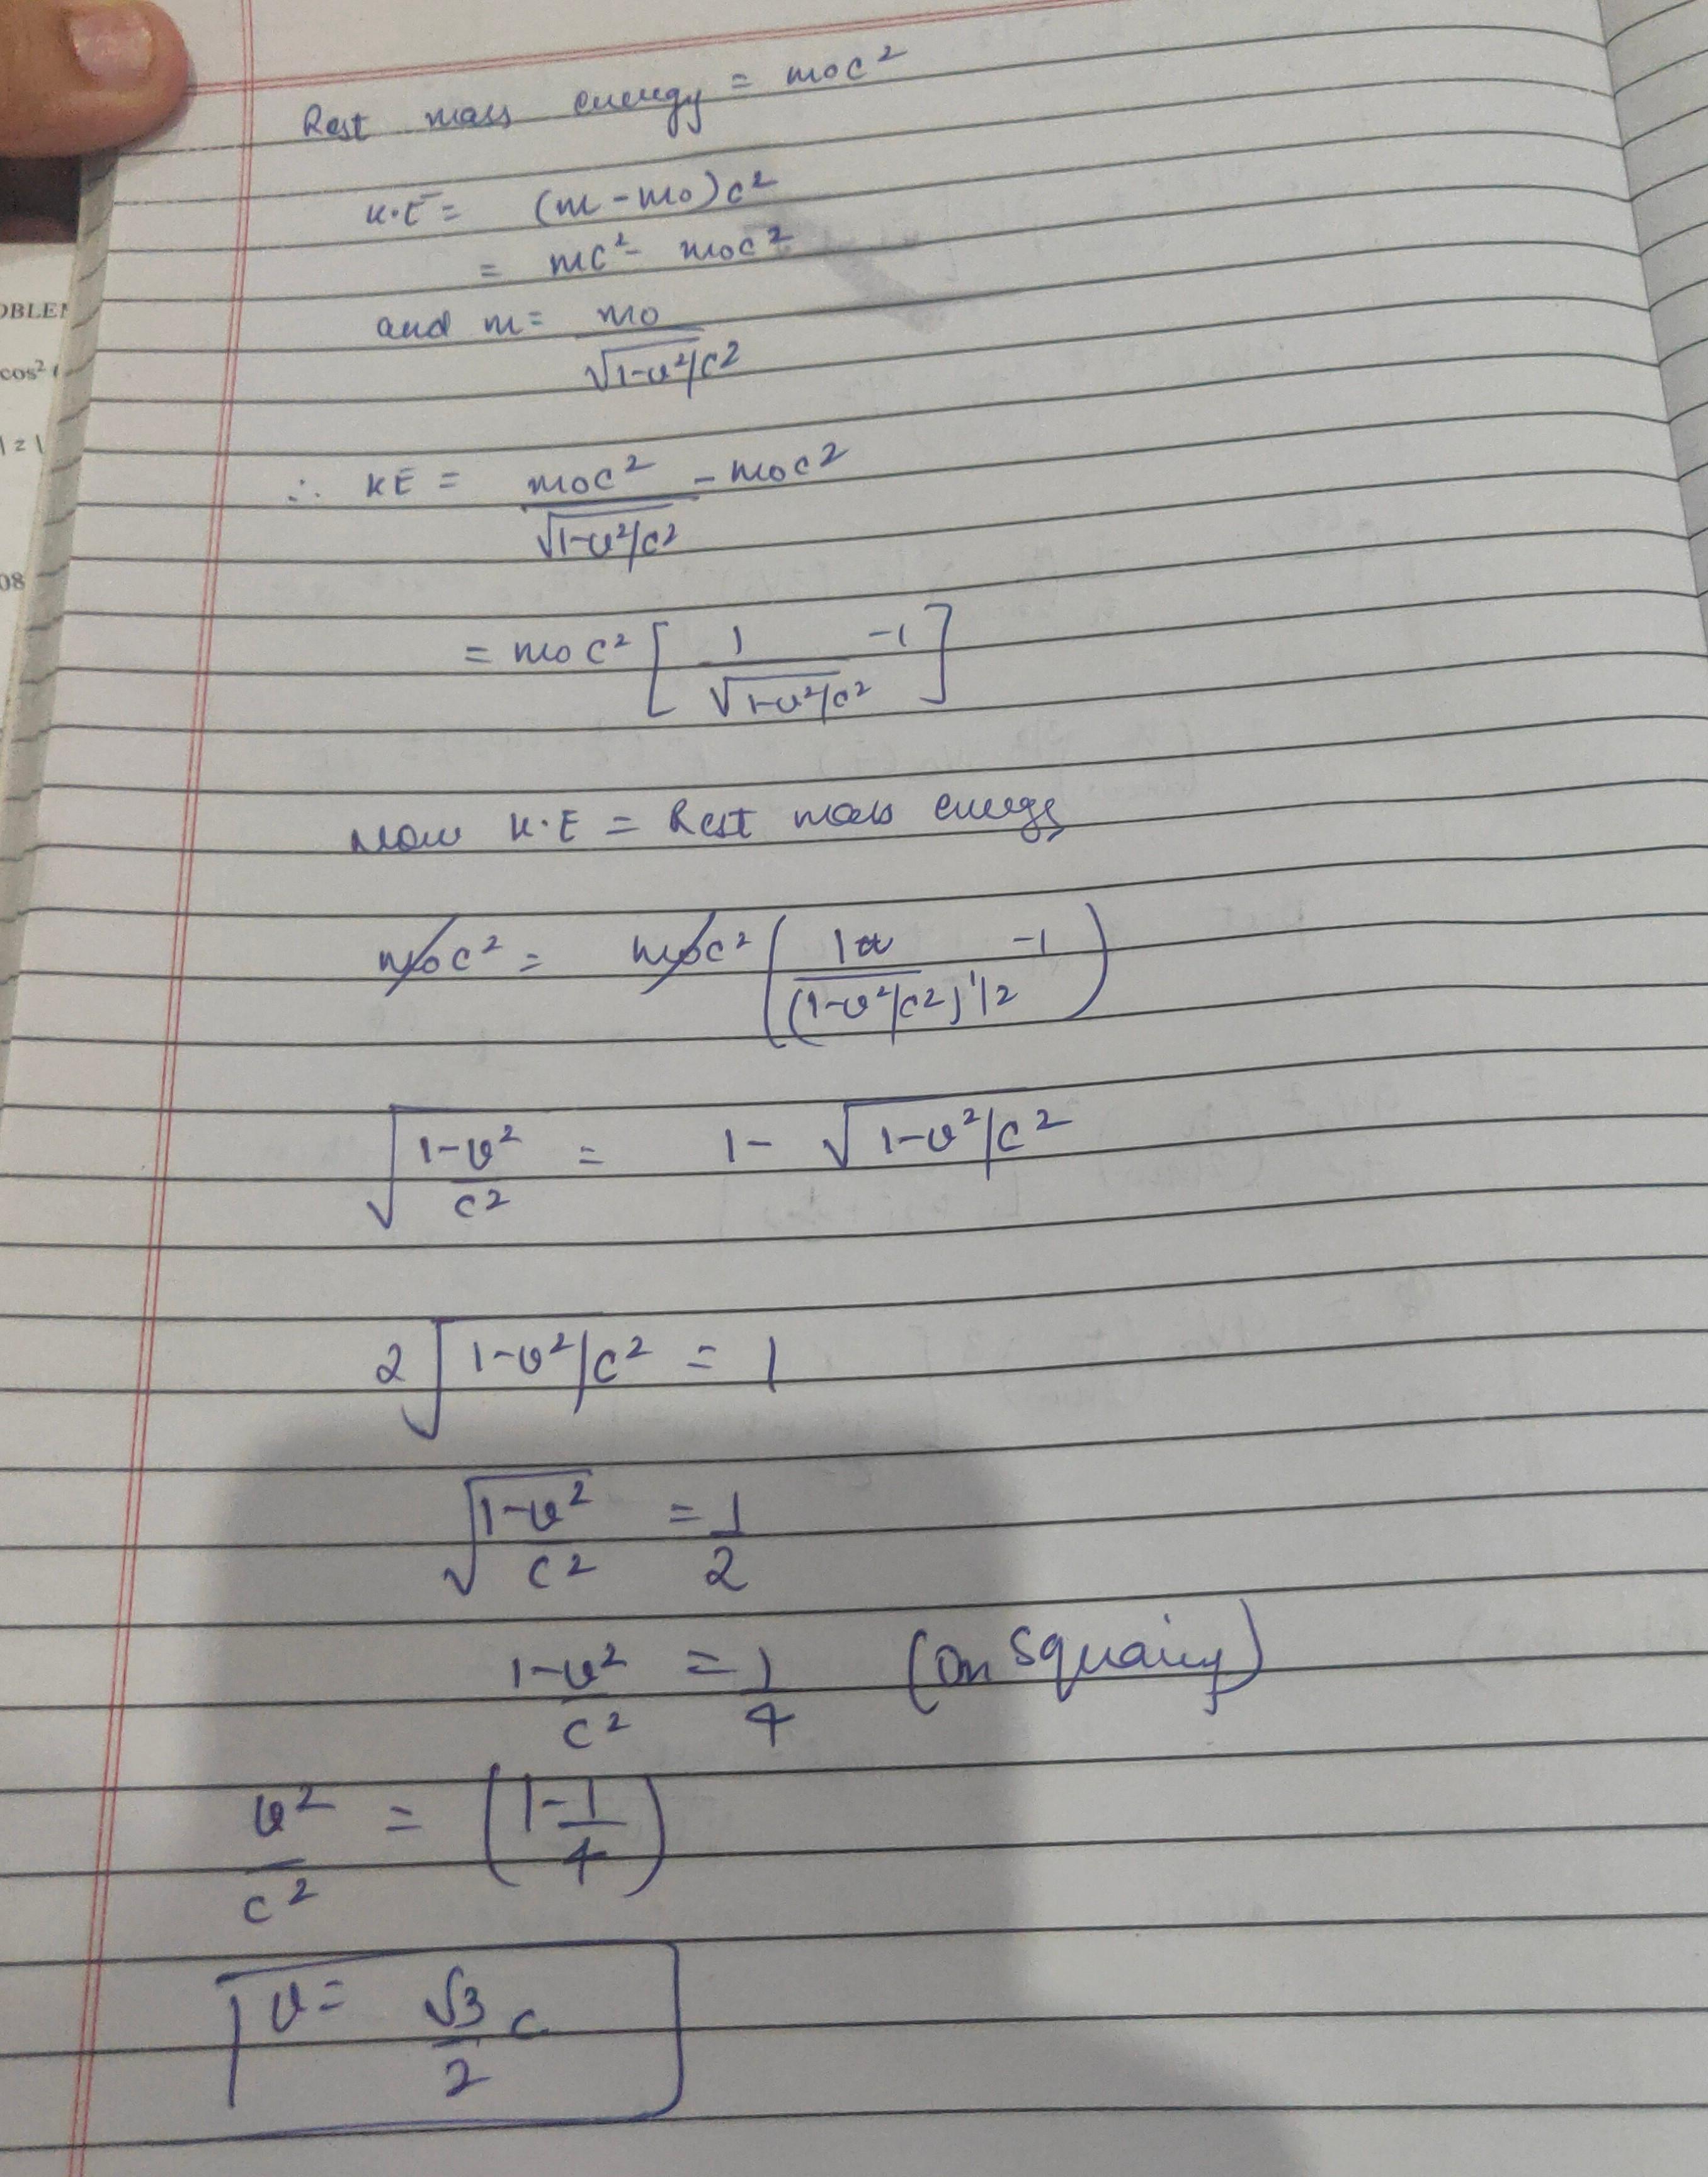 Rest mass energy = moc²
K.E = (m - mo)c²
= mc² - moc²
and m = mo / √1-v²/c²
∴ KE = moc² / √1-v²/c² - moc²
= moc² [ 1 / √1-v²/c² -1 ]
Now K.E = Rest mass energy
moc² = moc² ( 1 / (1-v²/c²)^1/2 -1 )
√1-v²/c² = 1- √1-v²/c²
2√1-v²/c² = 1
√1-v²/c² = 1/2
1-v²/c² = 1/4 (On Squaring)
v²/c² = (1-1/4)
v = √3/2 c
OBLE
cos²
1 z 1
08